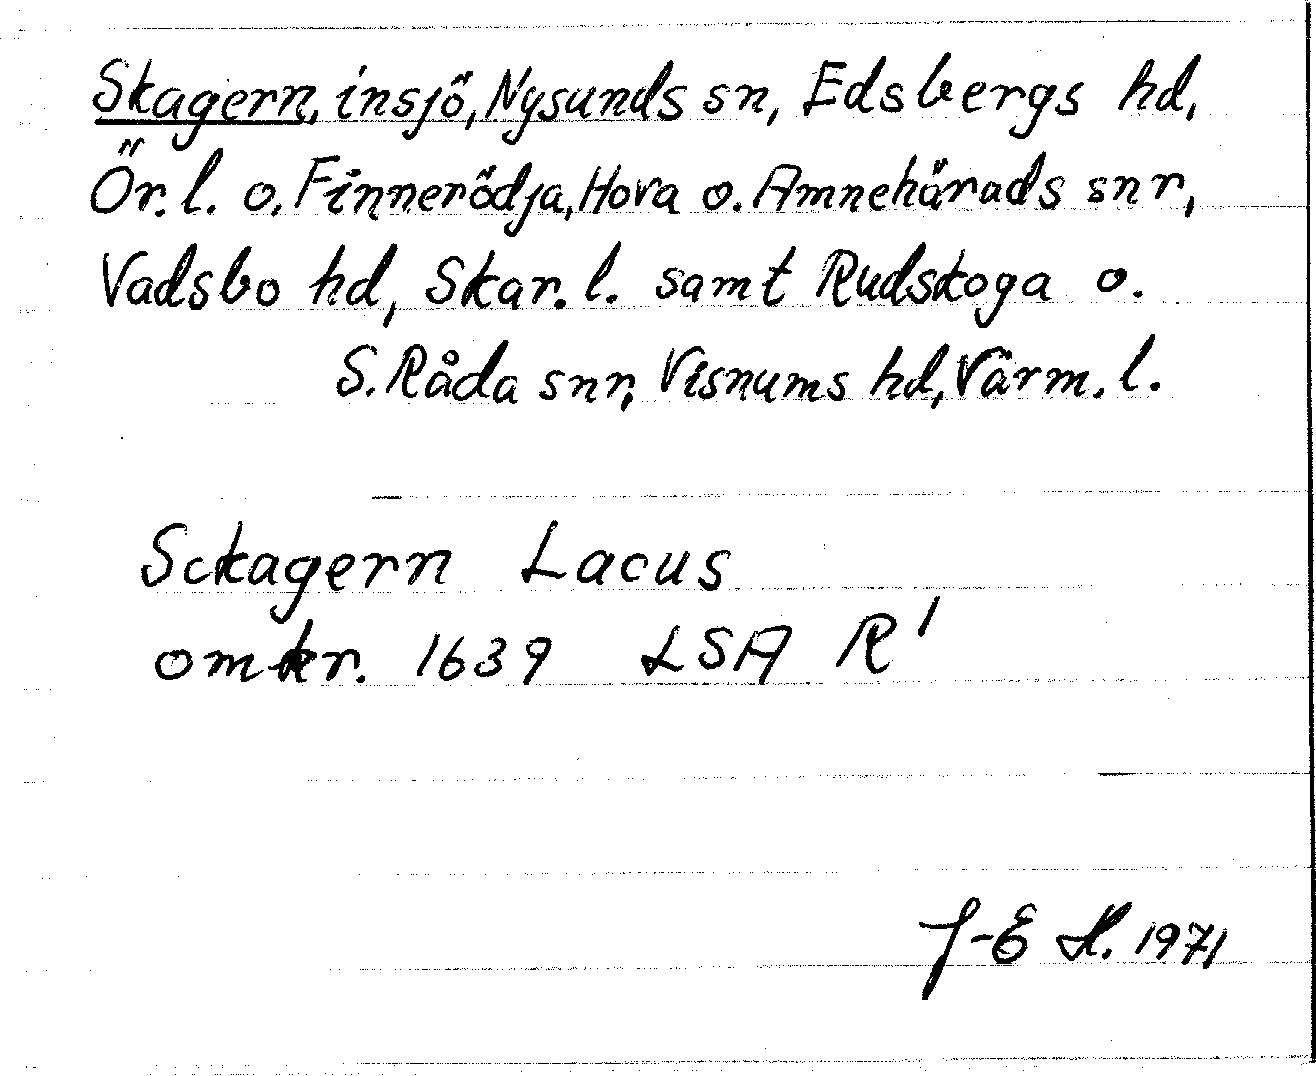 Skagern, insjö, Nysunds sn, Edsbergs hd,
Ör. l. o. Finnerödja, Hova o. Amnehärads snr,
Vadsbo hd, Skar. l. samt Rudskoga o.
S. Råda snr, Visnums hd, Värm. l.
Sckagern Lacus
omkr. 1639 LSA R1
J-E H. 1971